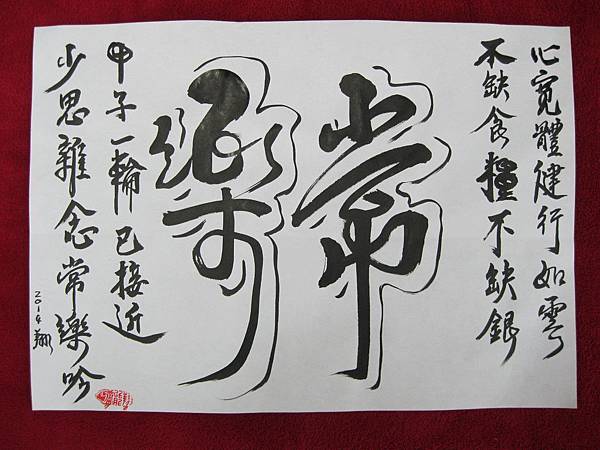 心寬體健行如雲
不缺食糧不缺銀
常樂
甲子一輪已接近
少思雜念常樂吟
2014 翔